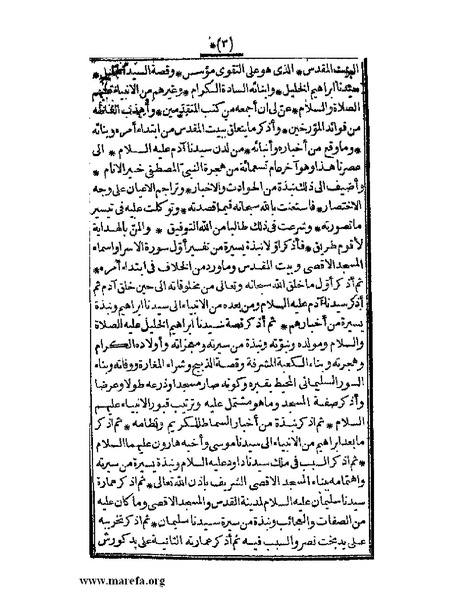 *(٣)*
البيت المقدس * الذى هو على التقوى مؤسس * وقصة السيد الجليل *
سيدنا ابراهيم الخليل * وابنائه السادة الكرام * وغيرهم من الانبياء عليهم
الصلاة والسلام * عن لى ان أجمعه من كتب المتقدمين * وأهذب ألفاظه
من فوائد المؤرخين * وأذكر ما يتعلق ببيت المقدس من ابتداء أمره وبنائه
وما وقع من أخباره وأنبائه * من لدن سيدنا آدم عليه السلام * الى
عصرنا هذا وهو آخر عام تسعمائة من هجرة النبى المصطفى خير الانام *
وأضيف الى ذلك نبذة من الحوادث والاخبار * وتراجم الاعيان على وجه
الاختصار * فاستعنت بالله سبحانه فيما قصدته * وتوكلت عليه فى تيسير
ما تصورته * وشرعت فى ذلك طالبا من الله التوفيق * والمن بالهداية
لأقوم طريق * فأذكر أولا نبذة يسيرة من تفسير أول سورة الاسرا وأسماء
المسجد الاقصى وبيت المقدس وما ورد من الخلاف فى ابتداء أمره *
ثم أذكر أول ما خلق الله سبحانه وتعالى من مخلوقاته الى حين خلق آدم ثم
أذكر سيدنا آدم عليه السلام ومن بعده من الانبياء الى سيدنا ابراهيم ونبذة
يسيرة من أخبارهم * ثم أذكر قصة سيدنا ابراهيم الخليل عليه الصلاة
والسلام ومولده ونبوته ونبذة من سيرته ومعجزاته وأولاده الكرام
وهجرته وبناء الكعبة المشرفة وقصة الذبيح وشراء المغارة ووفاته وبناء
السور السليمانى المحيط بقبره وكونه صار مسجدا وذرعه طولا وعرضا
وأذكر صفة المسجد وما هو مشتمل عليه وترتيب قبور الانبياء عليهم
السلام * ثم اذكر نبذة من أخبار السماط الكريم ونظامه * ثم أذكر
ما بعد ابراهيم من الانبياء الى سيدنا موسى وأخيه هارون عليهما السلام
* ثم اذكر السبب فى ملك سيدنا داود عليه السلام ونبذة يسيرة من سيرته
واهتمامه ببناء المسجد الاقصى الشريف باذن الله تعالى * ثم اذكر عمارة
سيدنا سليمان عليه السلام لمدينة القدس والمسجد الاقصى وما كان عليه
من الصفات والعجائب ونبذة من سيرة سيدنا سليمان * ثم اذكر تخريبه
على يد بخت نصر والسبب فيه ثم أذكر عمارته الثانية على يد كورش
www.marefa.org